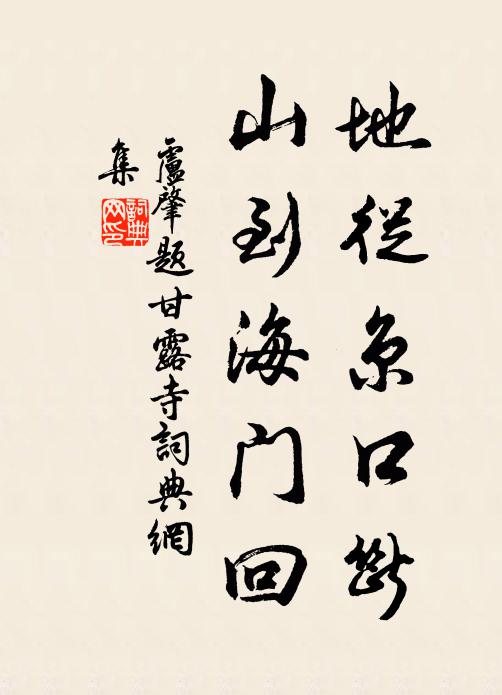 地從京口斷
山到海門回
盧肇題甘露寺詞典網
集
詞典
网印